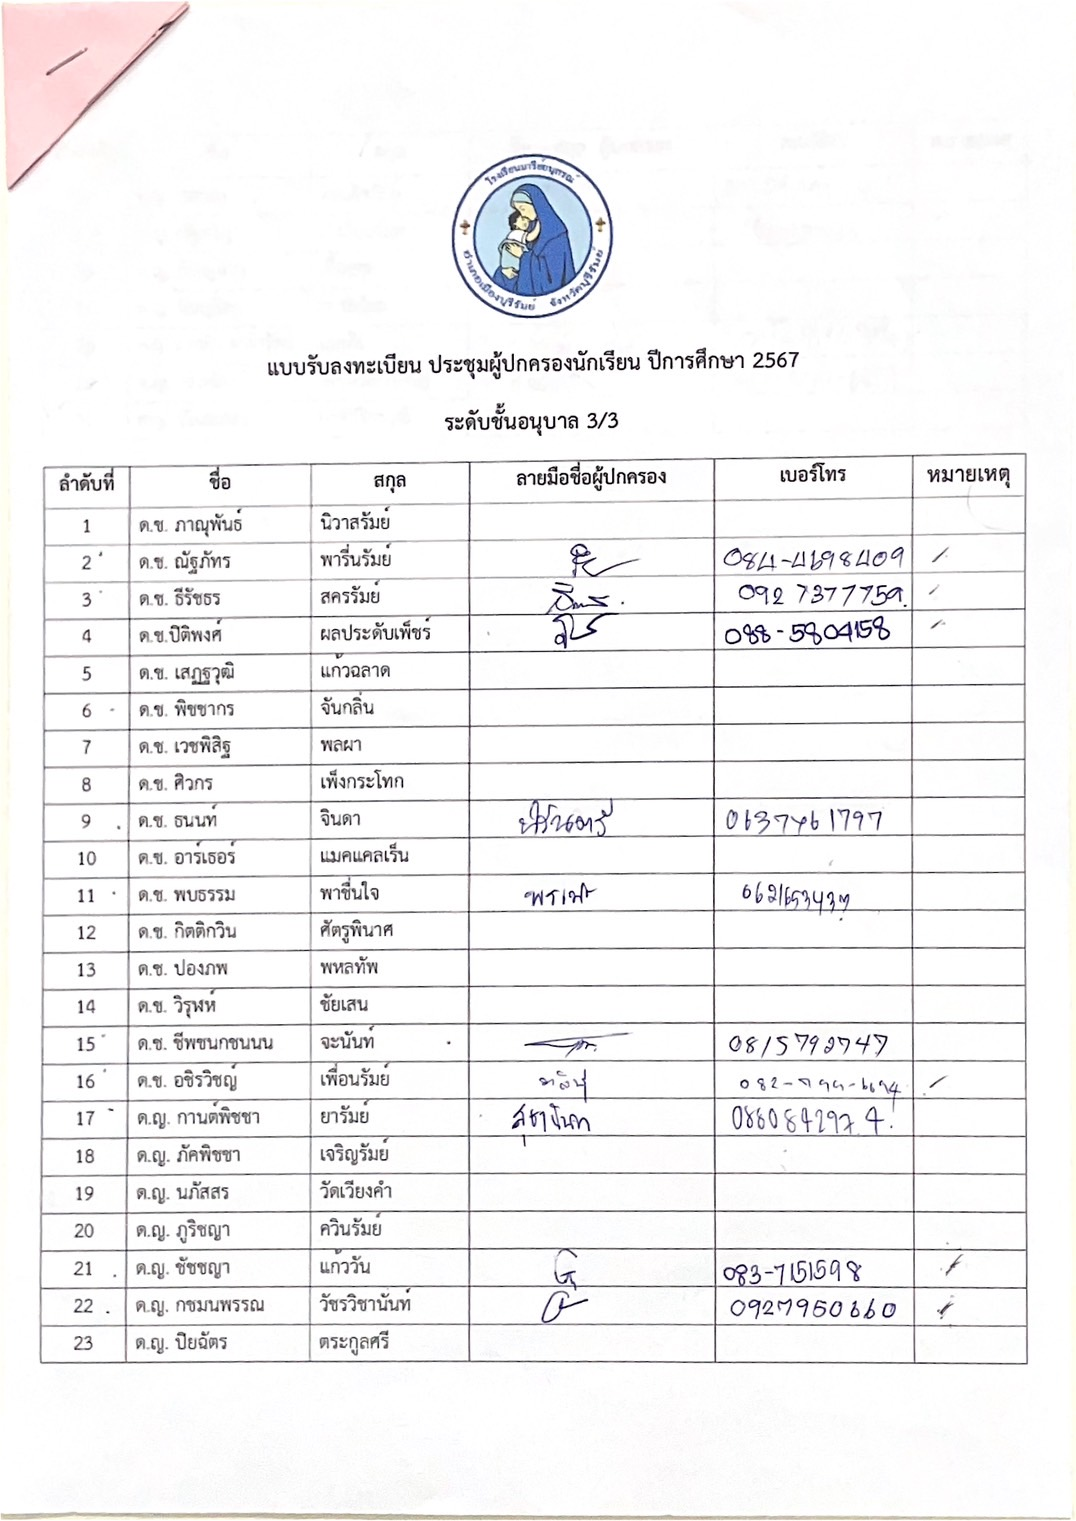 โรงเรียนมารีย์อนุสรณ์
อำเภอเมืองบุรีรัมย์ จังหวัดบุรีรัมย์
แบบรับลงทะเบียน ประชุมผู้ปกครองนักเรียน ปีการศึกษา 2567
ระดับชั้นอนุบาล 3/3
ลำดับที่ ชื่อ สกุล ลายมือชื่อผู้ปกครอง เบอร์โทร หมายเหตุ
1 ด.ช. ภาณุพันธ์ นิวาสรัมย์
2 ด.ช. ณัฐภัทร พารื่นรัมย์ 084-4698409 /
3 ด.ช. ธีรัชธร สครรัมย์ 092 7377759 /
4 ด.ช.ปิติพงศ์ ผลประดับเพ็ชร์ 088-5804158 /
5 ด.ช. เสฏฐวุฒิ แก้วฉลาด
6 ด.ช. พิชชากร จันกลิ่น
7 ด.ช. เวชพิสิฐ พลผา
8 ด.ช. ศิวกร เพ็งกระโทก
9 ด.ช. ธนนท์ จินดา 0637461797
10 ด.ช. อาร์เธอร์ แมคแคลเร็น
11 ด.ช. พบธรรม พาชื่นใจ
12 ด.ช. กิตติกวิน ศัตรูพินาศ
13 ด.ช. ปองภพ พหลทัพ
14 ด.ช. วิรุฬห์ ชัยเสน
15 ด.ช. ชีพชนกชนนน จะนันท์ 0815792747
16 ด.ช. อชิรวิชญ์ เพื่อนรัมย์ /
17 ด.ญ. กานต์พิชชา ยารัมย์ สุชานันท 0860842974
18 ด.ญ. ภัคพิชชา เจริญรัมย์
19 ด.ญ. นภัสสร วัดเวียงคำ
20 ด.ญ. ภูริชญา ควินรัมย์
21 ด.ญ. ชัชชญา แก้ววัน 083-7151598 /
22 ด.ญ. กชมนพรรณ วัชรวิชานันท์ 0927950660 /
23 ด.ญ. ปิยฉัตร ตระกูลศรี